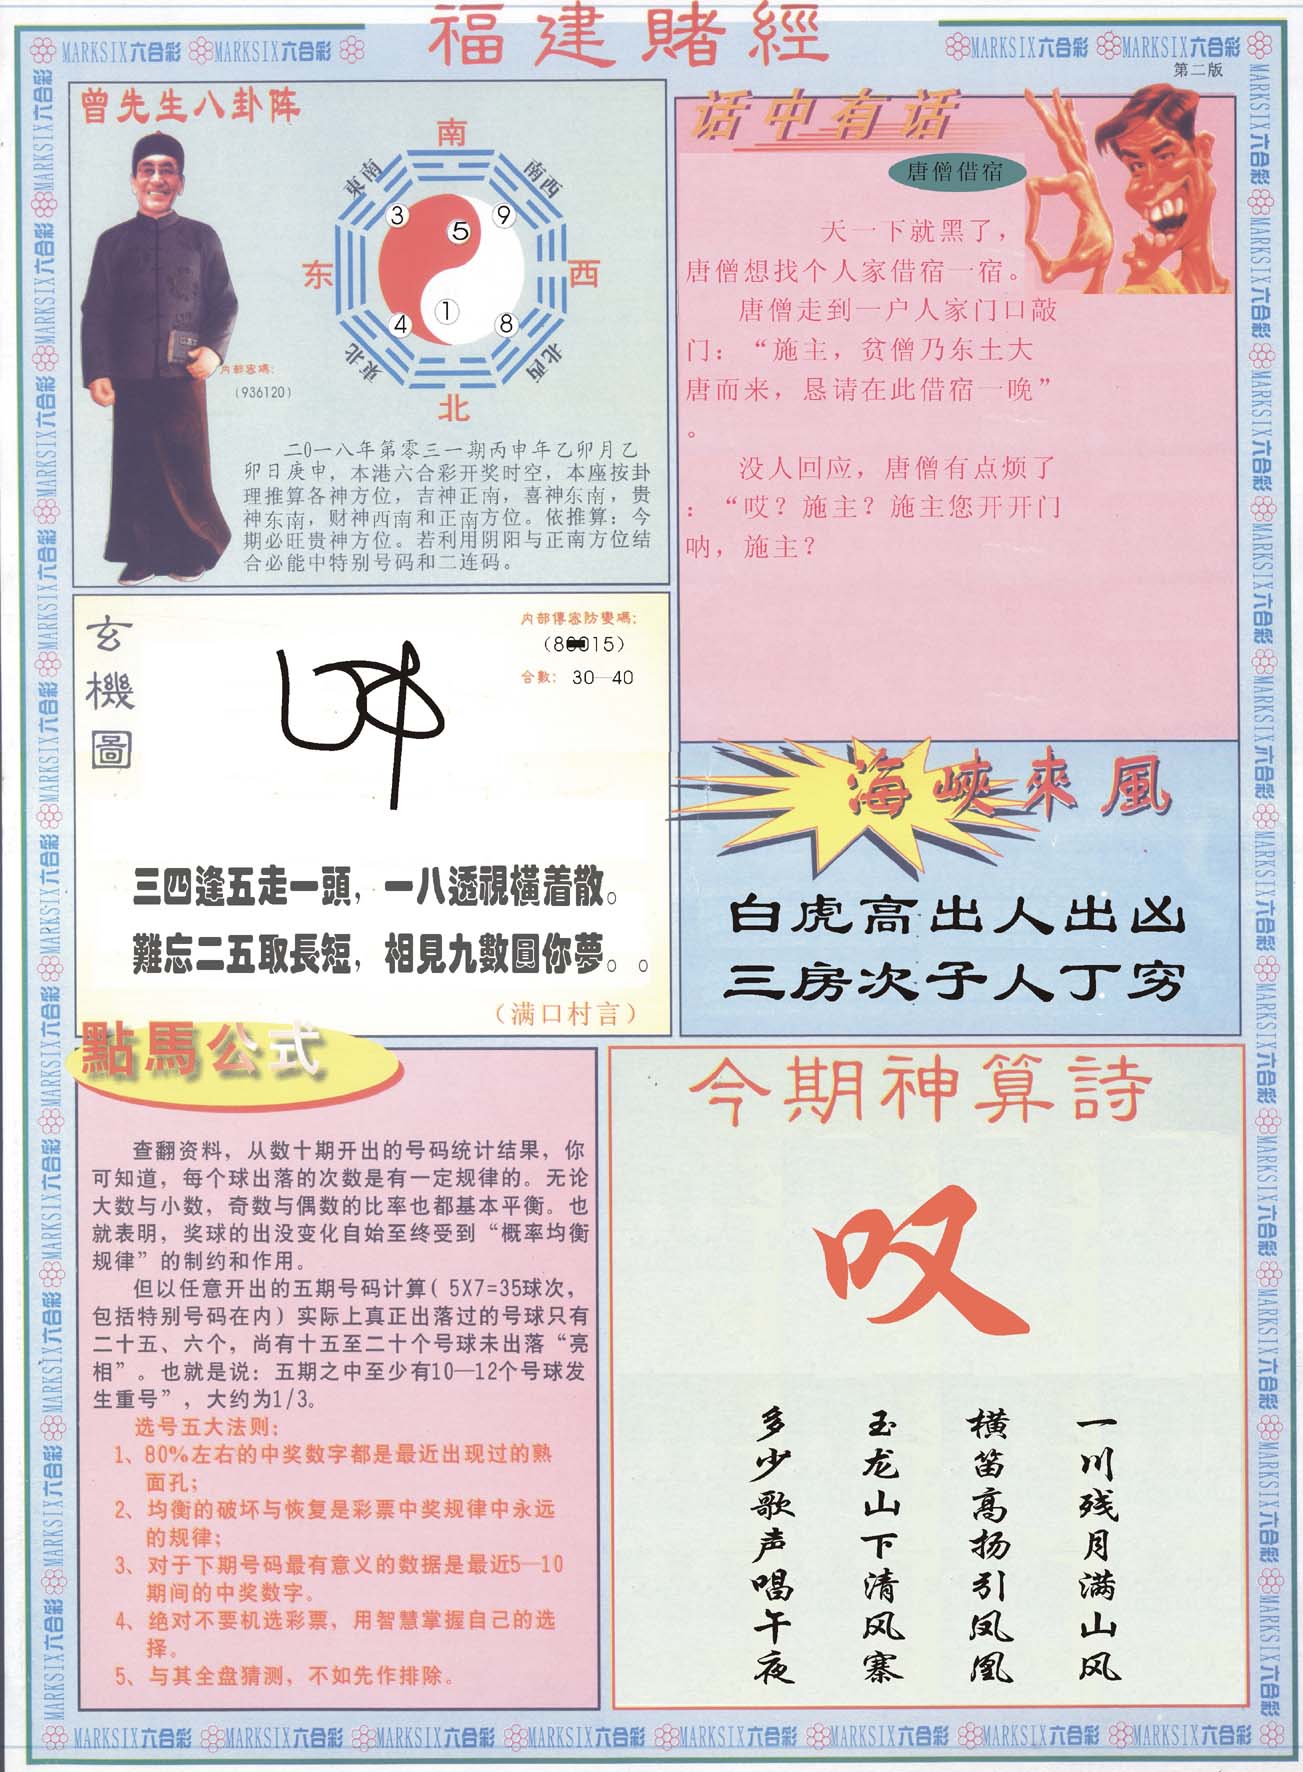 福建賭經
MARKSIX六合彩 MARKSIX六合彩
MARKSIX六合彩 MARKSIX六合彩
第二版
曾先生八卦阵
南
東南
南西
3
9
5
东
西
1
4
8
東北
北西
北
内部密碼:
(936120)
二0一八年第零三一期丙申年乙卯月乙
卯日庚申，本港六合彩开奖时空，本座按卦
理推算各神方位，吉神正南，喜神东南，贵
神东南，财神西南和正南方位。依推算：今
期必旺贵神方位。若利用阴阳与正南方位结
合必能中特别号码和二连码。
话中有话
唐僧借宿
天一下就黑了，
唐僧想找个人家借宿一宿。
唐僧走到一户人家门口敲
门：“施主，贫僧乃东土大
唐而来，恳请在此借宿一晚”
。
没人回应，唐僧有点烦了
：“哎？施主？施主您开开门
呐，施主？
玄機圖
内部傳密防變碼:
15)
合數: 30—40
三四逢五走一頭，一八透視橫着散。
難忘二五取長短，相見九數圓你夢。。
（满口村言）
海峽來風
白虎高出人出凶
三房次子人丁穷
點馬公式
查翻资料，从数十期开出的号码统计结果，你
可知道，每个球出落的次数是有一定规律的。无论
大数与小数，奇数与偶数的比率也都基本平衡。也
就表明，奖球的出没变化自始至终受到“概率均衡
规律”的制约和作用。
但以任意开出的五期号码计算( 5X7=35球次，
包括特别号码在内）实际上真正出落过的号球只有
二十五、六个，尚有十五至二十个号球未出落“亮
相”。也就是说：五期之中至少有10—12个号球发
生重号”，大约为1/3。
选号五大法则：
1、80%左右的中奖数字都是最近出现过的熟
面孔；
2、均衡的破坏与恢复是彩票中奖规律中永远
的规律；
3、对于下期号码最有意义的数据是最近5—10
期间的中奖数字。
4、绝对不要机选彩票，用智慧掌握自己的选
择。
5、与其全盘猜测，不如先作排除。
今期神算詩
叹
一川残月满山风
横笛高扬引凤凰
玉龙山下清风寨
多少歌声唱午夜
MARKSIX六合彩 MARKSIX六合彩 MARKSIX六合彩 MARKSIX六合彩 MARKSIX六合彩 MARKSIX六合彩 MARKSIX六合彩 MARKSIX六合彩